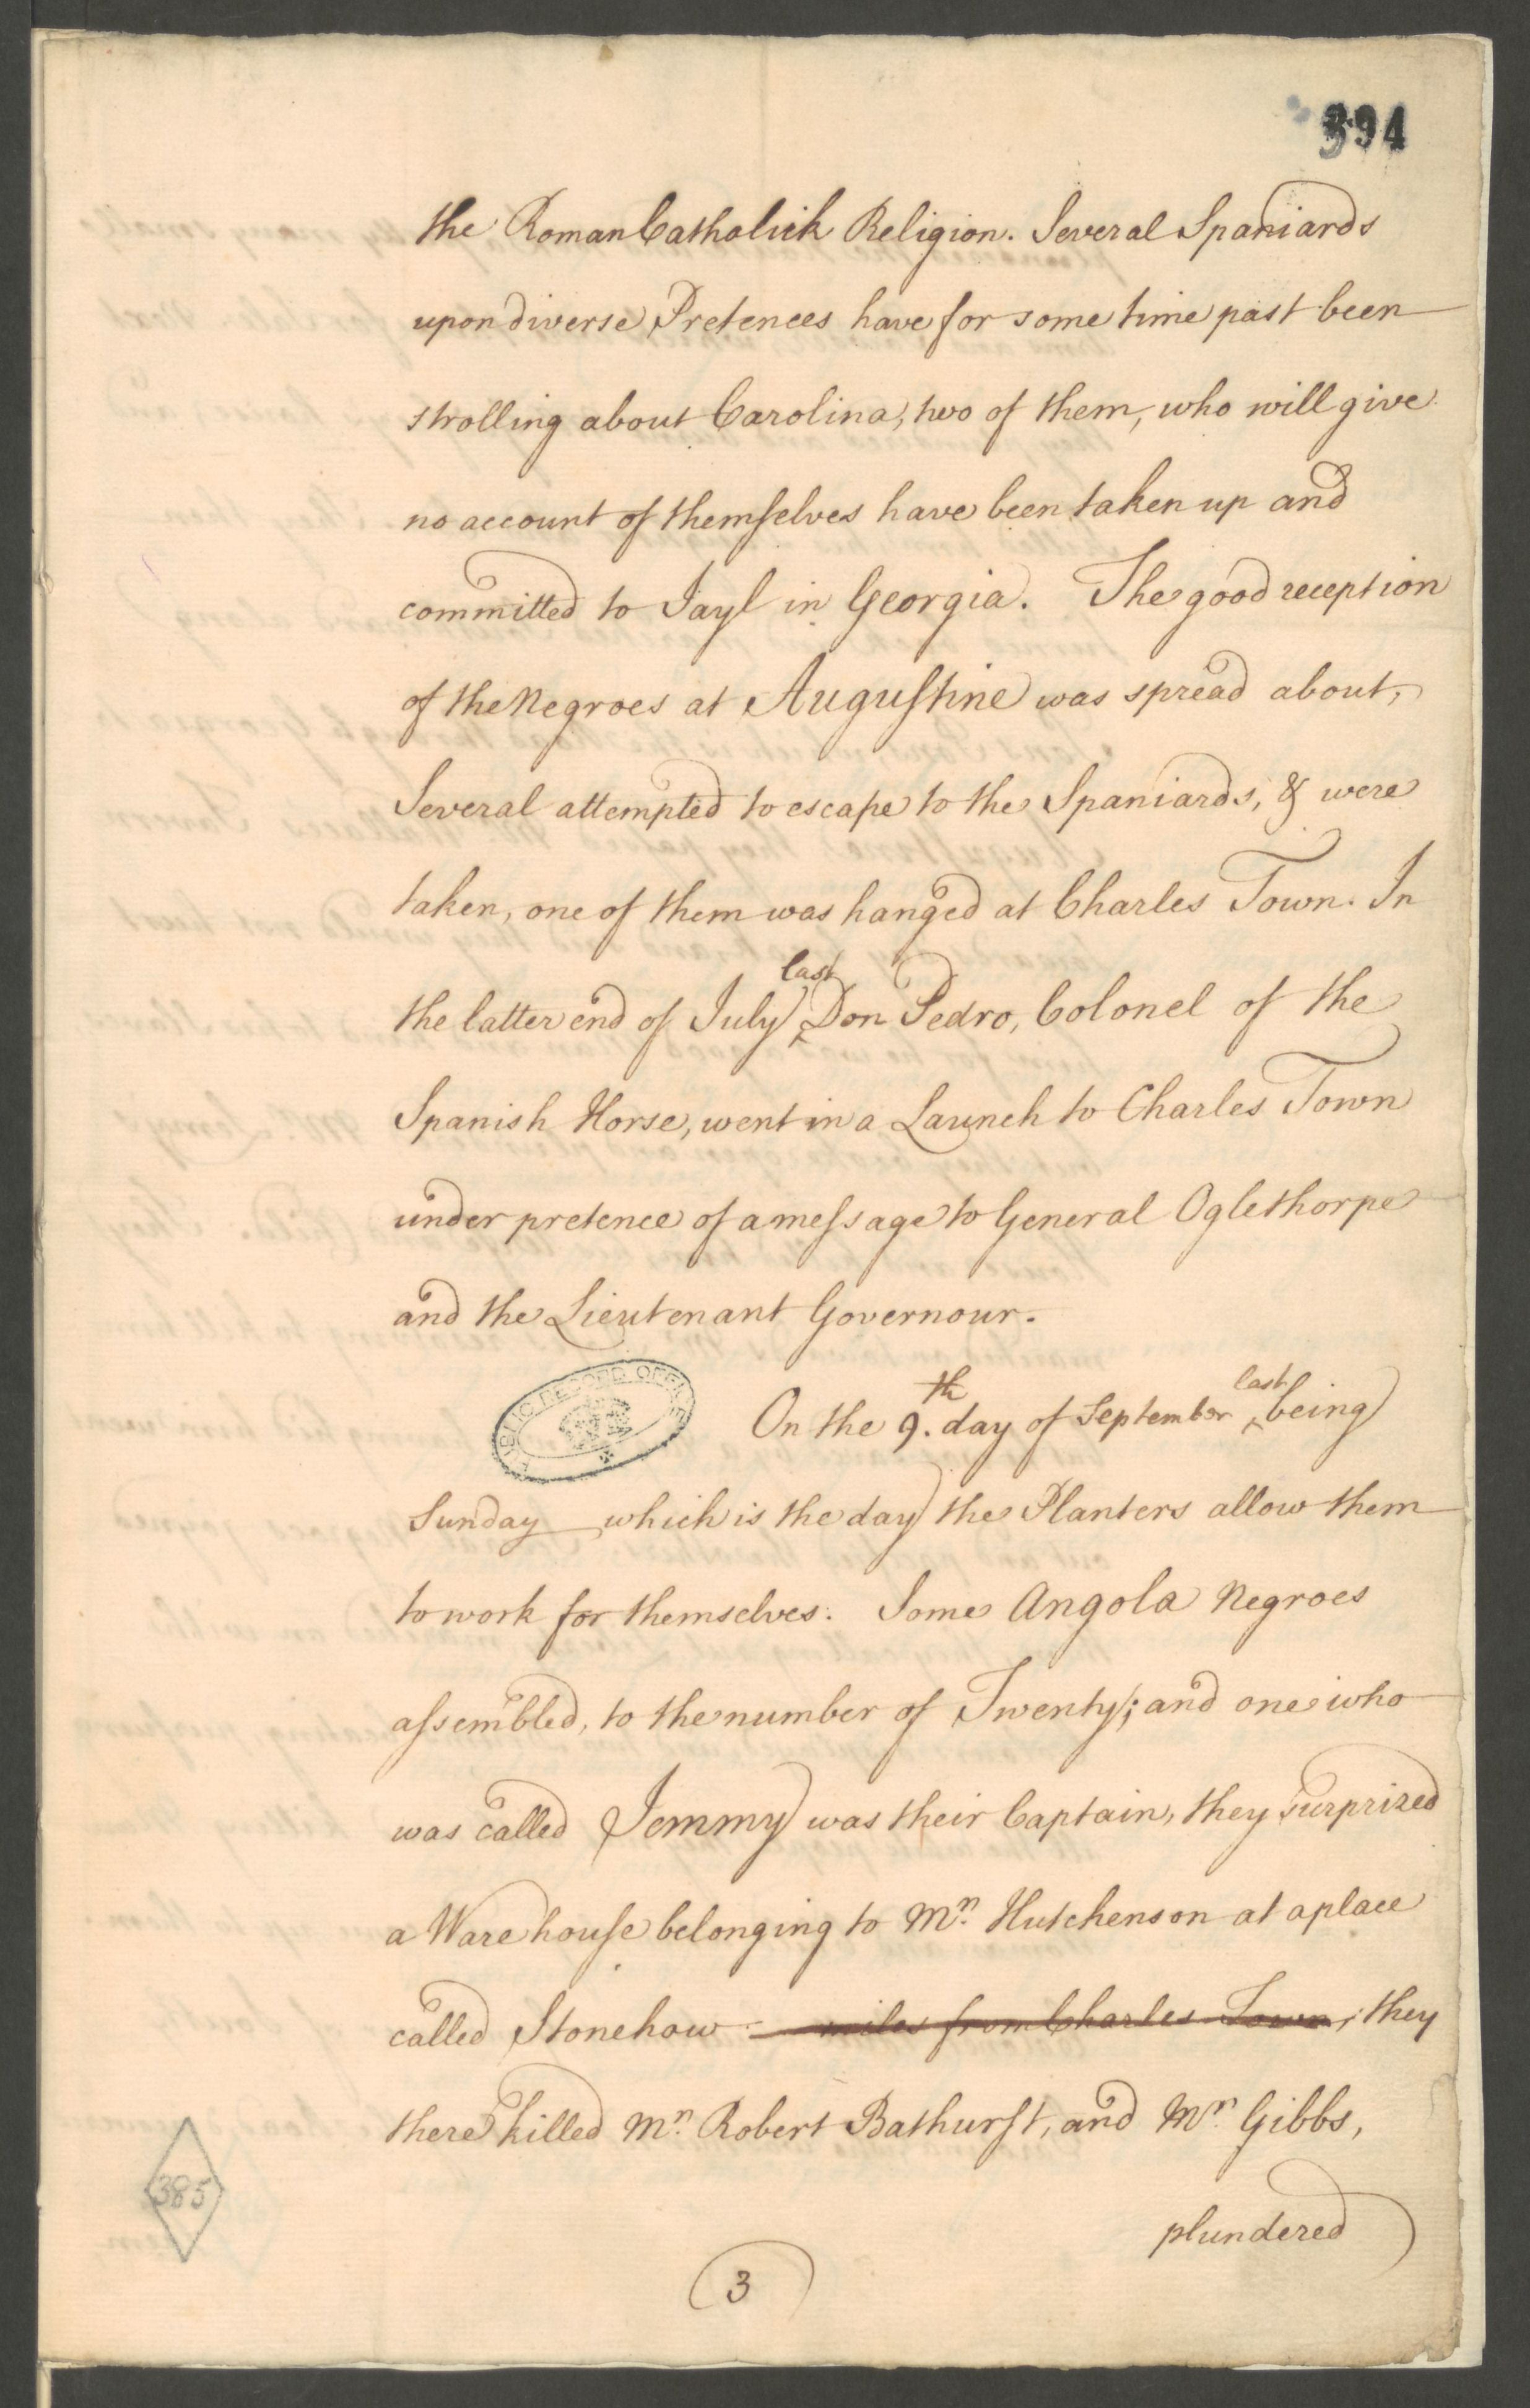 394
the Roman Catholick Religion. Several Spaniards
upon diverse Pretences have for some time past been
strolling about Carolina, two of them, who will give
no account of themselves have been taken up and
committed to Jayl in Georgia. The good reception
of the Negroes at Augustine was spread about,
Several attempted to escape to the Spaniards, & were
taken, one of them was hanged at Charles Town. In
the latter end of July last Don Pedro, Colonel of the
Spanish Horse, went in a Launch to Charles Town
under pretence of a message to General Oglethorpe
and the Lieutenant Governour.
PUBLIC RECORD OFFICE
On the 9.th day of September last being
Sunday which is the day the Planters allow them
to work for themselves. Some Angola Negroes
assembled, to the number of Twenty; and one who
was called Jemmy was their Captain, they surprized
a Warehouse belonging to Mr. Hutchenson at a place
called Stonehow miles from Charles Town; they
there killed Mr. Robert Bathurst, and Mr. Gibbs,
plundered
385
3